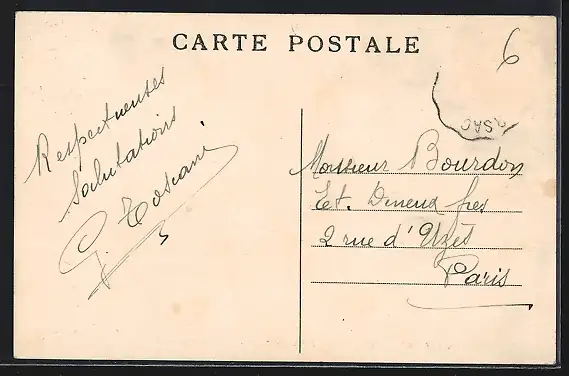 CARTE POSTALE
6
Respectueuses
Salutations
G. Toscani
RSAC
Monsieur Bourdon
Et. Deneux fres
2 rue d'Uzès
Paris